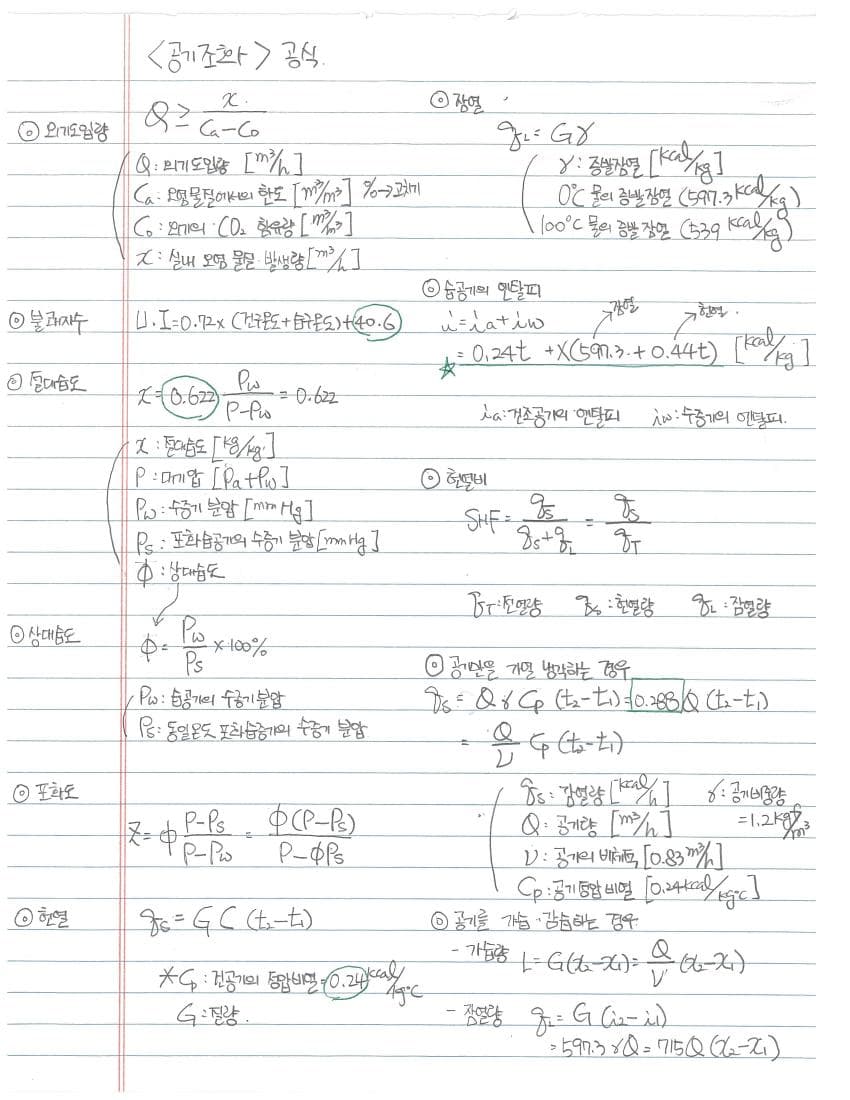 <공기조화> 공식.
◎ 외기도입량
Q ≥ x / (Ca-Co)
Q : 외기도입량 [m³/h]
Ca : 오염물질에서의 한도 [m³/m³] %→고치기
Co : 외기의 CO₂ 함유량 [m³/m³]
x : 실내 오염 물질 발생량 [m³/h]
◎ 불쾌지수
U.I=0.72×(건구온도+습구온도)+40.6
◎ 절대습도
x = 0.622 Pw / (P-Pw) = 0.622
x : 절대습도 [kg/kg']
P : 대기압 [Pa+Pw]
Pw : 수증기 분압 [mmHg]
Ps : 포화습공기의 수증기 분압 [mmHg]
φ : 상대습도
◎ 상대습도
φ = Pw / Ps × 100%
Pw : 습공기의 수증기분압
Ps : 동일온도 포화습증기의 수증기 분압
◎ 포화도
Z = φ (P-Ps) / (P-Pw) = φ(P-Ps) / (P-φPs)
◎ 현열
qs = G C (t₂-t₁)
*Cp : 건공기의 등압비열=0.24 kcal/kg℃
G : 질량.
◎ 잠열
qL = Gγ
γ : 증발잠열 [kcal/kg]
0℃ 물의 증발잠열 (597.3 kcal/kg)
100℃ 물의 증발잠열 (539 kcal/kg)
◎ 습공기의 엔탈피
i = ia + iw
잠열 현열.
☆ = 0.24t + X(597.3.+0.44t) [kcal/kg]
ia : 건조공기의 엔탈피 iw : 수증기의 엔탈피.
◎ 현열비
SHF = qs / (qs+qL) = qs / qT
qT : 전열량 qs : 현열량 qL : 잠열량
◎ 공기만을 가열 냉각하는 경우
qs = Q γ Cp (t₂-t₁)=0.288 Q (t₂-t₁)
= Q / ν Cp (t₂-t₁)
qs : 감열량 [kcal/h] γ : 공기비중량
Q : 공기량 [m³/h] =1.2kgf/m³
ν : 공기의 비체적 [0.83 m³/h]
Cp : 공기등압비열 [0.24kcal/kg℃]
◎ 공기를 가습·감습하는 경우
- 가습량 L = G(x₂-x₁)= Q / ν (x₂-x₁)
- 잠열량 qL = G (i₂-i₁)
= 597.3 γQ = 715Q (x₂-x₁)